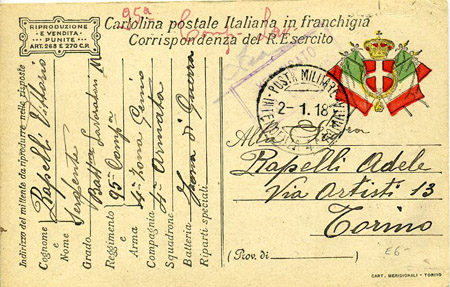 RIPRODUZIONE
E VENDITA
PUNITE
ART. 268 E 270 C.P.
95a
Cartolina postale Italiana in franchigia
Corrispondenza del R. Esercito
POSTA MILITARE
2-1.18
Indirizzo del mittente da riprodurre nelle risposte
Cognome e Nome Rapelli Vittorio
Grado Sergente
Reggimento e Arma 95a Compa
Compagnia 4a Zona Genio
Squadrone 4a Armata
Batteria Zona di Guerra
Riparti speciali
Alla
Rapelli Adele
Via Artisti 13
Torino
(Prov. di )
£6-
CART. MERIDIONALI - TORINO